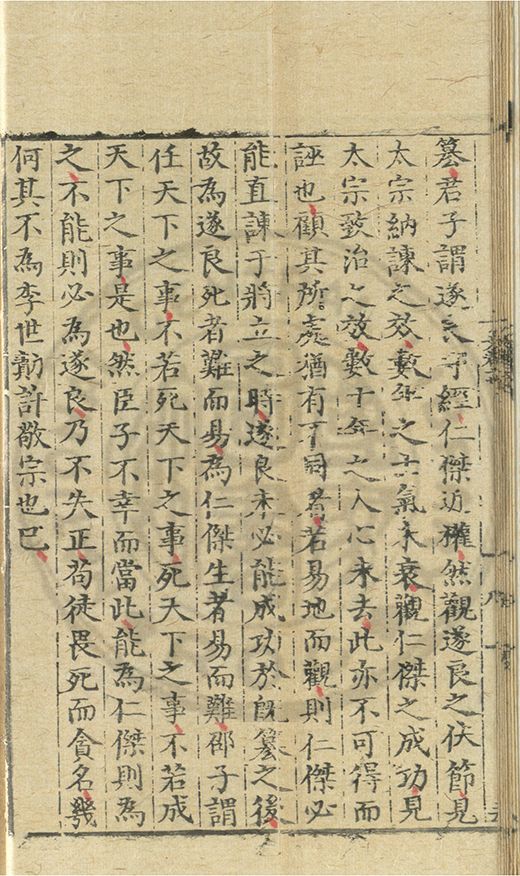 篡君子謂遂良守經仁傑近權然觀遂良之伏節見
太宗納諫之效數年之士氣未衰觀仁傑之成功見
太宗致治之效數十年之人心未去此亦不可得而
誣也顧其所處猶有不同者若易地而觀則仁傑必
能直諫于將立之時遂良未必能成功於既篡之後
故為遂良死者難而易為仁傑生者易而難邵子謂
任天下之事不若死天下之事死天下之事不若成
天下之事是也然臣子不幸而當此能為仁傑則為
之不能則必為遂良乃不失正苟徒畏死而貪名幾
何其不為李世勣許敬宗也已